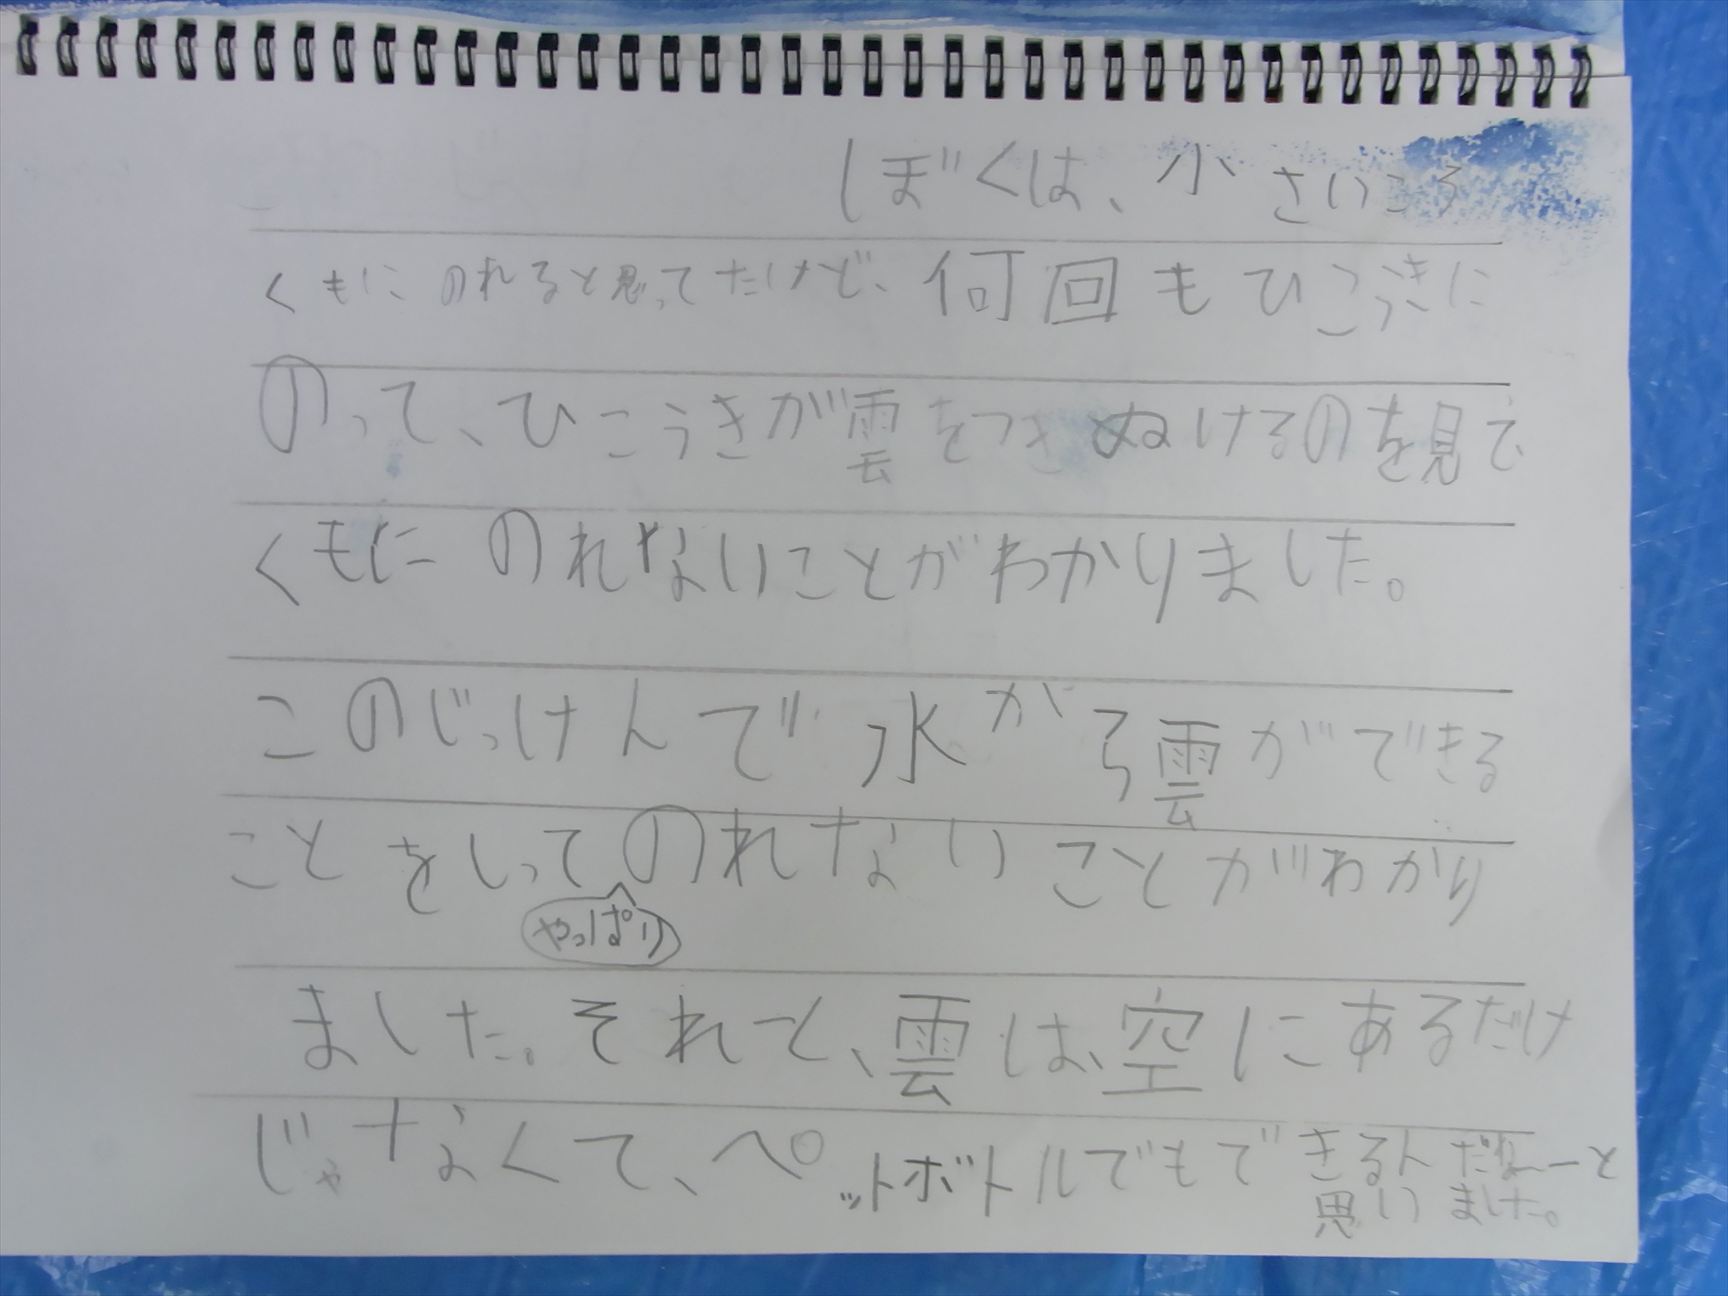 ぼくは、小さいころ
くもにのれると思ってたけど、何回もひこうきに
のって、ひこうきが雲をつきぬけるのを見て
くもにのれないことがわかりました。
このじっけんで水から雲ができる
ことをしってのれないことがわかり
やっぱり
ました。それと、雲は、空にあるだけ
じゃなくて、ペットボトルでもできるんだなーと
思いました。